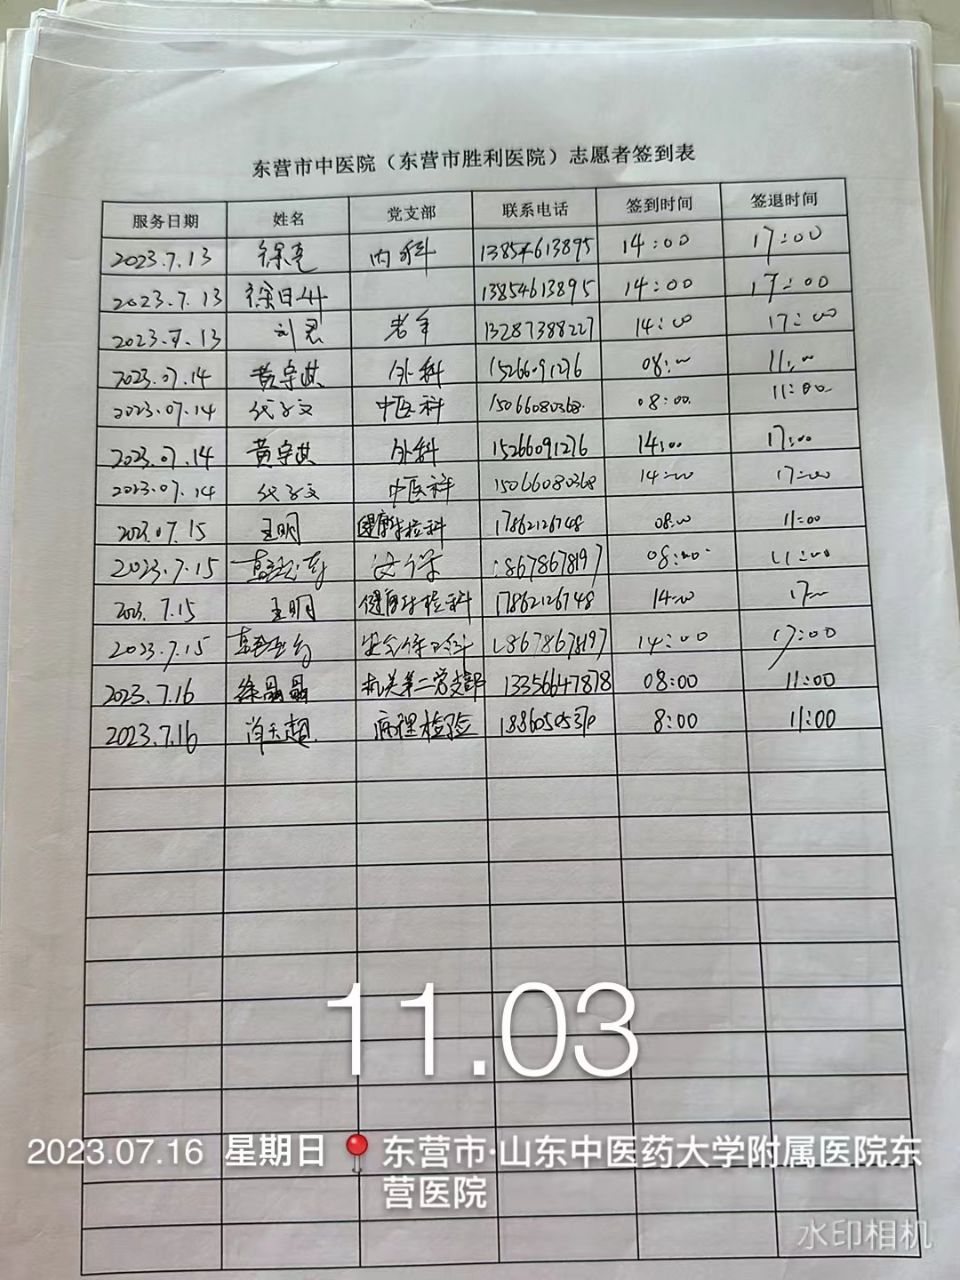 东营市中医院（东营市胜利医院）志愿者签到表
服务日期 姓名 党支部 联系电话 签到时间 签退时间
2023.7.13 徐亮 内科 13854613895 14:00 17:00
2023.7.13 徐日升 13854613895 14:00 17:00
2023.7.13 刘君 老年 13287388227 14:00 17:00
2023.07.14 黄宇琪 外科 15266091276 08:00 11:00
2023.07.14 中医科 15066080368 08:00 11:00
2023.07.14 黄宇琪 外科 15266091276 14:00 17:00
2023.07.14 中医科 15066080368 14:00 17:00
2023.07.15 王明 健康体检科 17862126748 08:00 11:00
2023.7.15 18678678197 08:00 11:00
2023.7.15 王明 健康体检科 17862126748 14:00 17:00
2023.7.15 18678678197 14:00 17:00
2023.7.16 徐晶晶 机关第二党支部 13356647878 08:00 11:00
2023.7.16 肖玉超 病理检验 8:00 11:00
11.03
2023.07.16 星期日 东营市·山东中医药大学附属医院东
营医院
水印相机